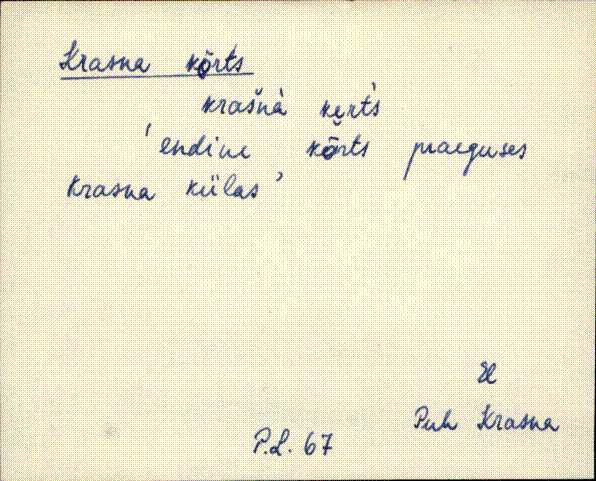 Krasna kõrts
krašnà ke̮rt's
'endine kõrts praeguses
Krasna külas'
El
Puh Krasna
P.L. 67